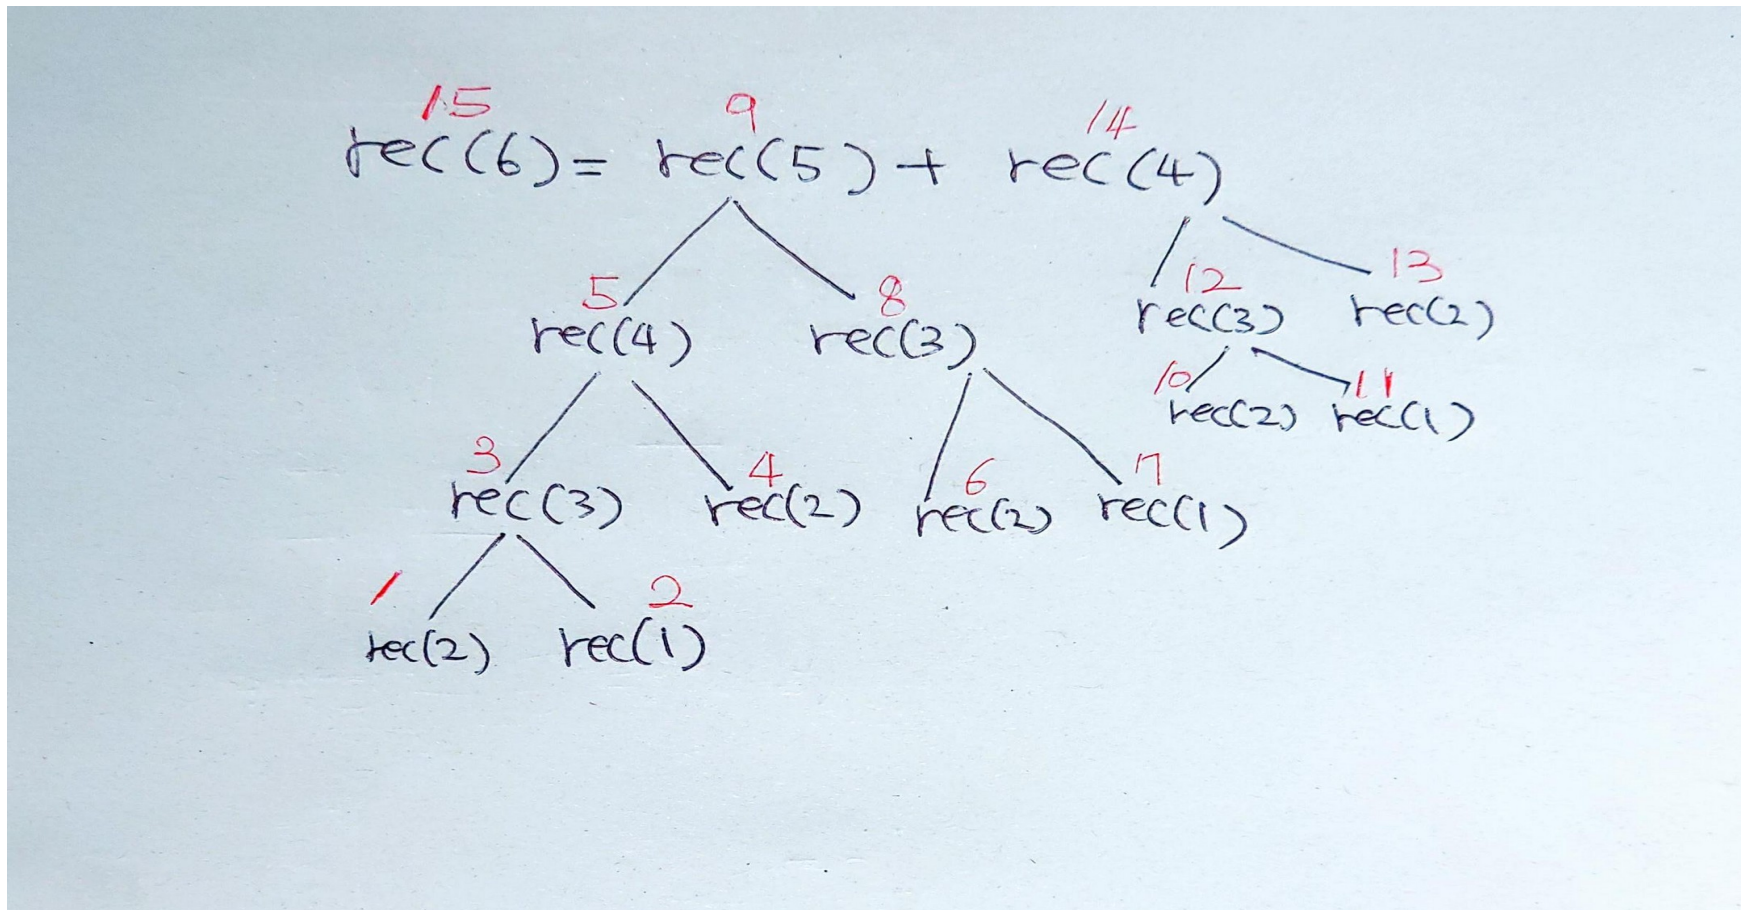 15 9 14
rec(6) = rec(5) + rec(4)
5 8 12 13
rec(4) rec(3) rec(3) rec(2)
10 11
rec(2) rec(1)
3 4 6 7
rec(3) rec(2) rec(2) rec(1)
1 2
rec(2) rec(1)